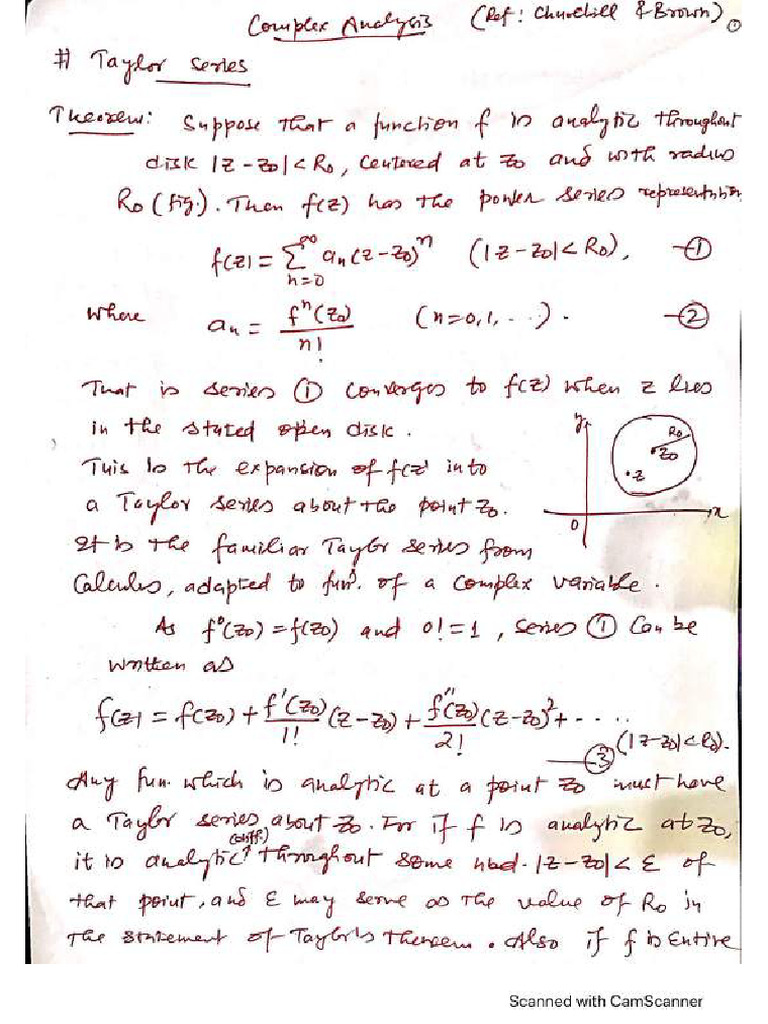 Complex Analysis (Ref: Churchill & Brown) ①
# Taylor series
Theorem: Suppose that a function f is analytic throughout
disk |z - z₀| < R₀, centered at z₀ and with radius
R₀ (fig.). Then f(z) has the power series representation
f(z) = ∑_{n=0}^{∞} aₙ(z-z₀)ⁿ (|z-z₀| < R₀), —①
where aₙ = fⁿ(z₀)/n! (n=0,1,...). —②
That is series ① converges to f(z) when z lies
in the stated open disk.
y R₀ z₀ z x 0
This is the expansion of f(z) into
a Taylor series about the point z₀.
It is the familiar Taylor series from
Calculus, adapted to funⁿ. of a complex variable.
As f⁰(z₀) = f(z₀) and 0! = 1, series ① can be
written as
f(z) = f(z₀) + f'(z₀)/1! (z-z₀) + f''(z₀)/2! (z-z₀)² + ....
—③ (|z-z₀| < R₀).
Any fun. which is analytic at a point z₀ must have
a Taylor series about z₀. For if f is analytic at z₀,
(diff.)
it is analytic throughout some nbd. |z-z₀| < ε of
that point, and ε may serve as the value of R₀ in
the statement of Taylor's theorem. Also if f is Entire
Scanned with CamScanner